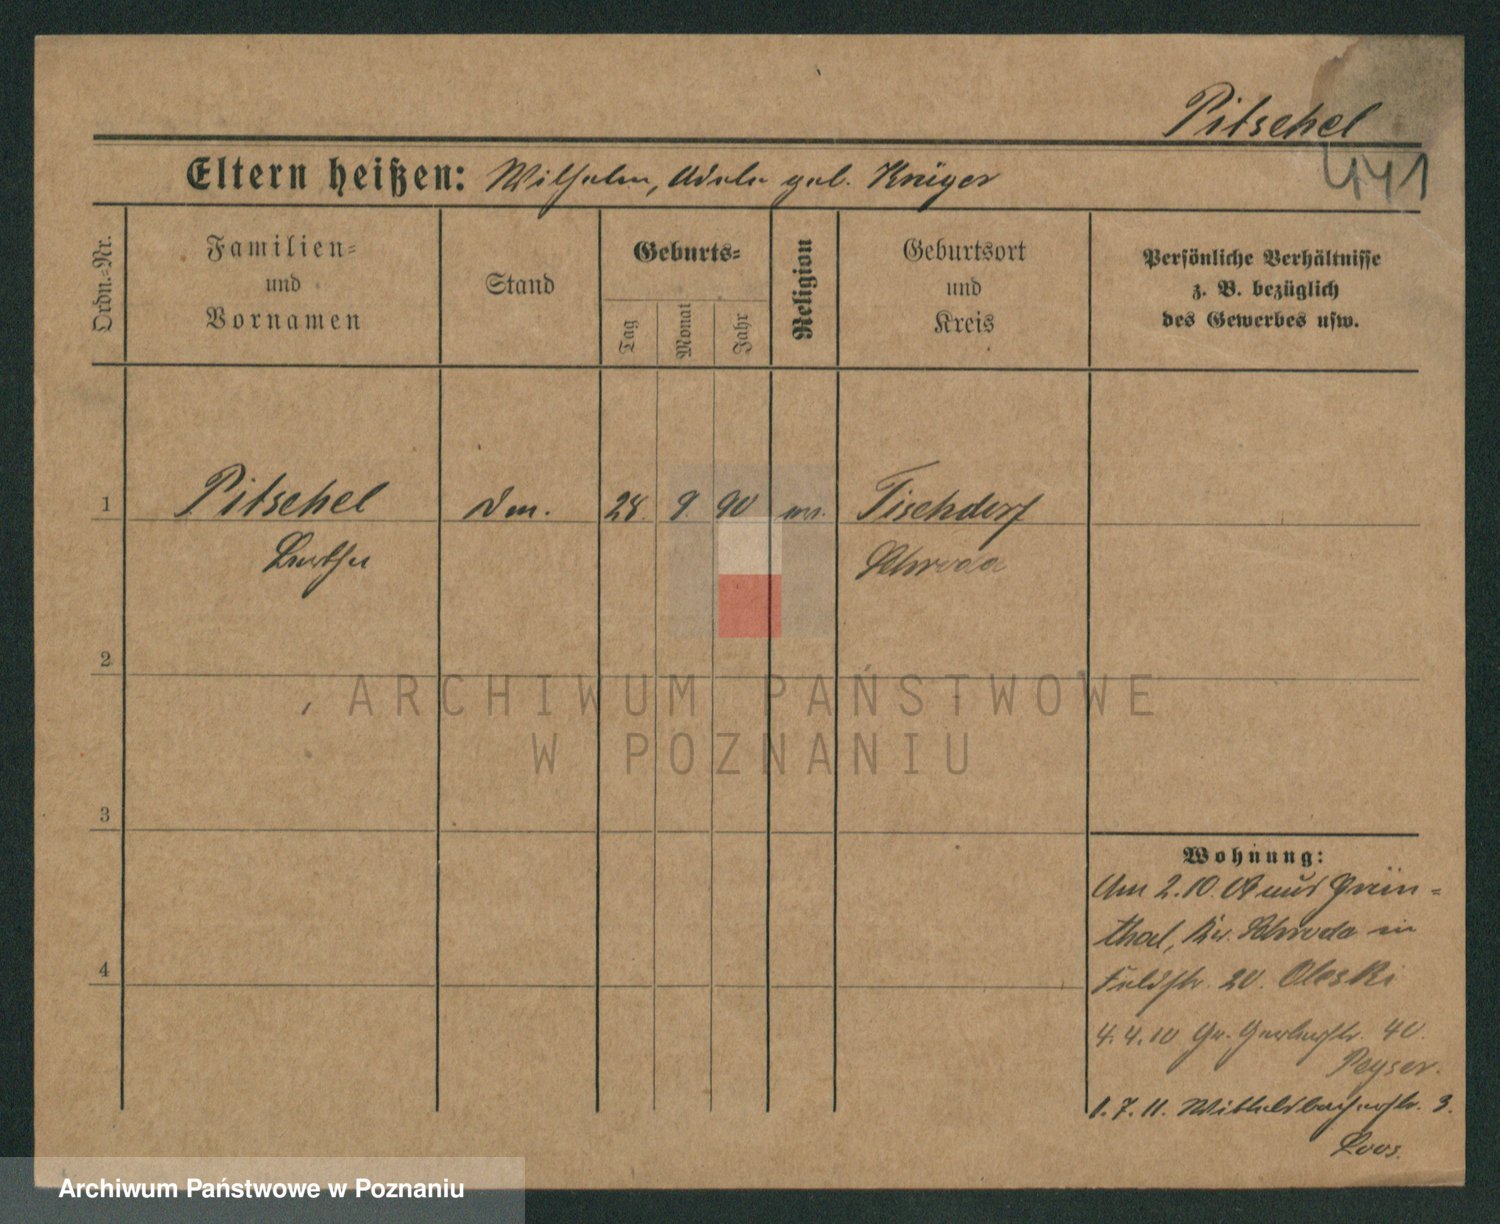 Pitschel
441
Eltern heißen: Wilhelm, Adele geb. Krüger
Ordn.=Nr.
Familien=
und
Vornamen
Stand
Geburts=
Tag
Monat
Jahr
Religion
Geburtsort
und
Kreis
Persönliche Verhältnisse
z. B. bezüglich
des Gewerbes usw.
1 Pitschel 28. 9. 90 Tischdorf
Schroda
2
ARCHIWUM PAŃSTWOWE
W POZNANIU
3
Wohnung:
Am 2.10. aus Grün=
thal, Kr. Schroda in
4
Feldstr. 20. Oleski
4.4.10 Gr. Gerberstr. 40.
Peyser.
1.7.11. Wittelsbacherstr. 3.
Loos.
Archiwum Państwowe w Poznaniu